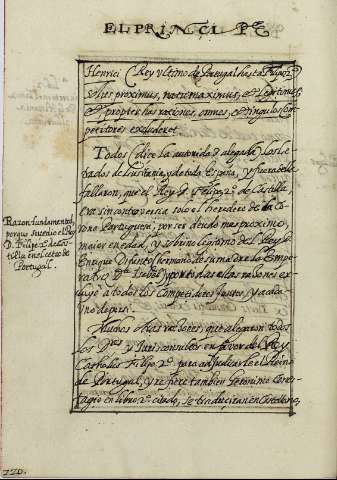 EL PRINCIPE
Henrici Rey ultimo de Portugal hasta Felipe 2º
proximus, natu maximus, et legitimus,
et propter has rationes, omnes, et singulos com-
petitores excluderet.
Todos dice la autoridad alegada los Le-
trados de Lusitania, y de toda España, y fuera de ella
fallaron, que el Rey D. Felipe 2º de Castilla
era sin controversia solo el heredero de la Co-
rona Portuguesa, por ser deudo mas proximo,
maior en edad, y sobrino legitimo del Rey D.
Enrique Difunto, hermano de su madre la Empe-
ratriz Dª Isabel, y por todas estas rasones ex-
cluyó a todos los Competidores
Muchas otras rasones, que alegaron todos
los y Jurisconsultos en favor del Rey
Catholico Felipe 2º para adjudicarle el Reino
de Portugal, y refiere tambien Geronimo Cones-
tagio en libro 2º citado, se traducirán en Castellano,
Razon fundamental
porque sucedio el Rey
D. Felipe 2º de Cas-
tilla en el cetro de
Portugal.
220.